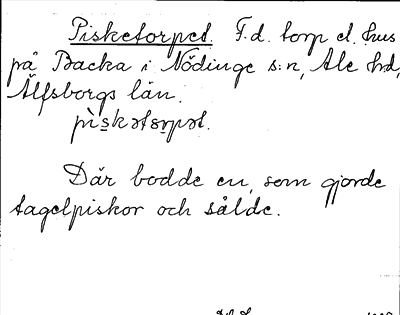 Pisketorpet. F.d. torp el. hus
på Backa i Nödinge s:n, Ale hd,
Älfsborgs län.
pìskətɔrpət.
Där bodde en, som gjorde
tagelpiskor och sålde.